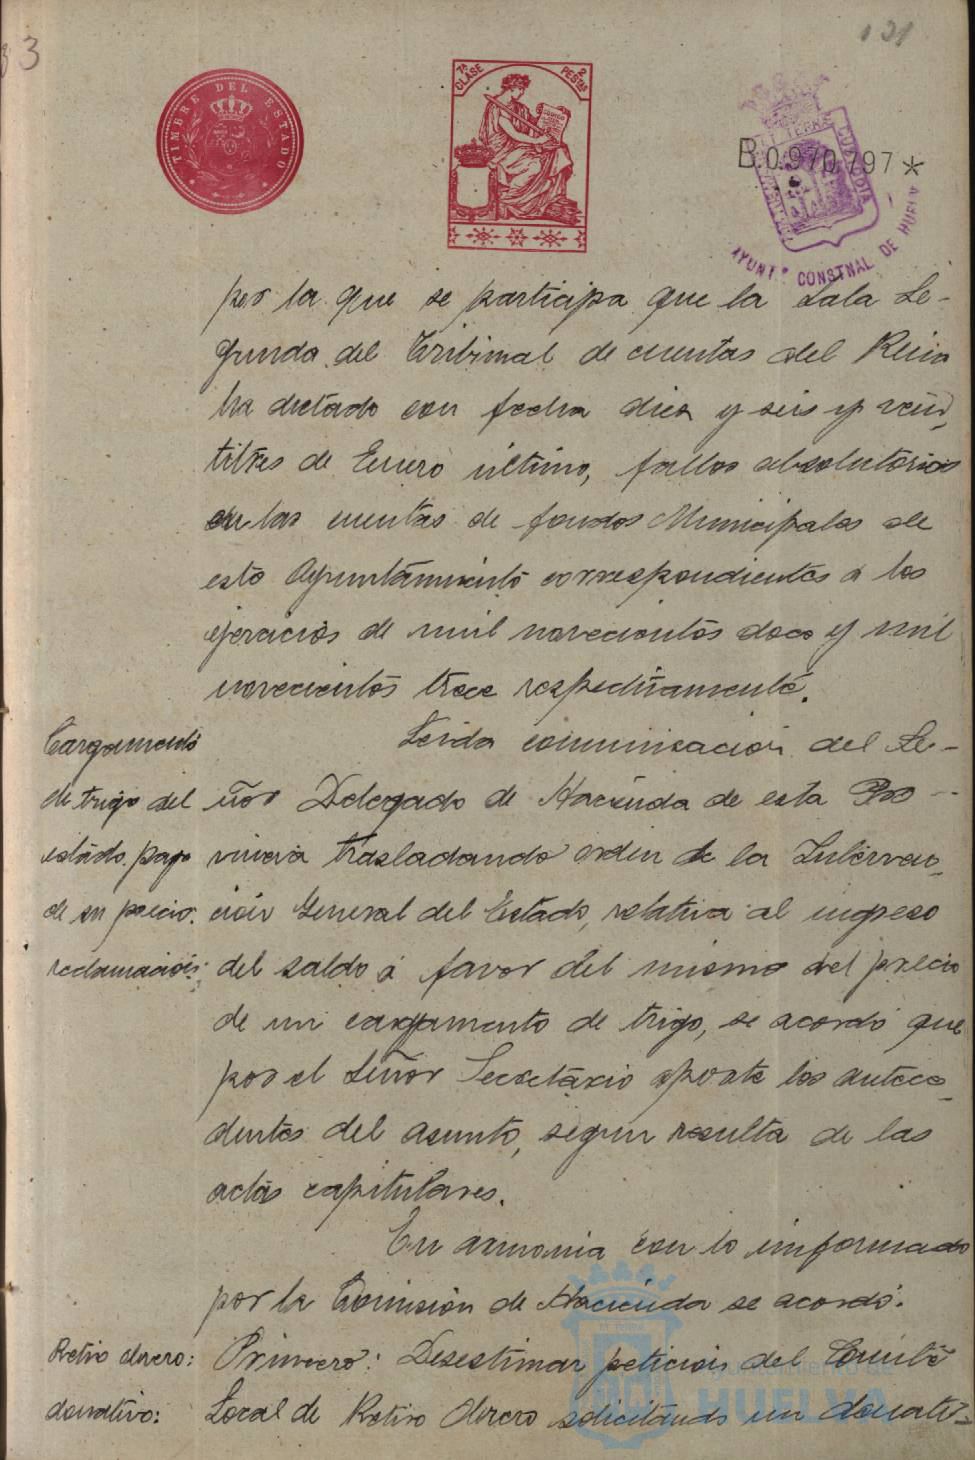 33
121
TIMBRE DEL ESTADO
7ª CLASE 2 PESTAS
B.0.970.797*
AYUNTº CONSTNAL DE HUELVA
por la que se participa que la Sala Se-
gunda del Tribunal de cuentas del Reino
ha dictado con fecha diez y seis y vein-
titres de Enero último, fallos absolutorios
en las cuentas de fondos Municipales de
este Ayuntamiento correspondientes a los
ejercicios de mil novecientos doce y mil
novecientos trece respectivamente.
Cargamento
de trigo del
estado. pago
de su precio.
reclamación:
Leida comunicación del Se-
ñor Delegado de Hacienda de esta Pro-
vincia trasladando orden de la Interven-
ción General del Estado, relativa al ingreso
del saldo á favor del mismo del precio
de un cargamento de trigo, se acordó que
por el Señor Secretario aporte los antece-
dentes del asunto, segun resulta de las
actas capitulares.
En armonia con lo informado
por la Comisión de Hacienda se acordó.
Retiro obrero:
donativo:
Primero: Desestimar petición del Comité
Local de Retiro Obrero solicitando un donati-
Ayuntamiento de
HUELVA